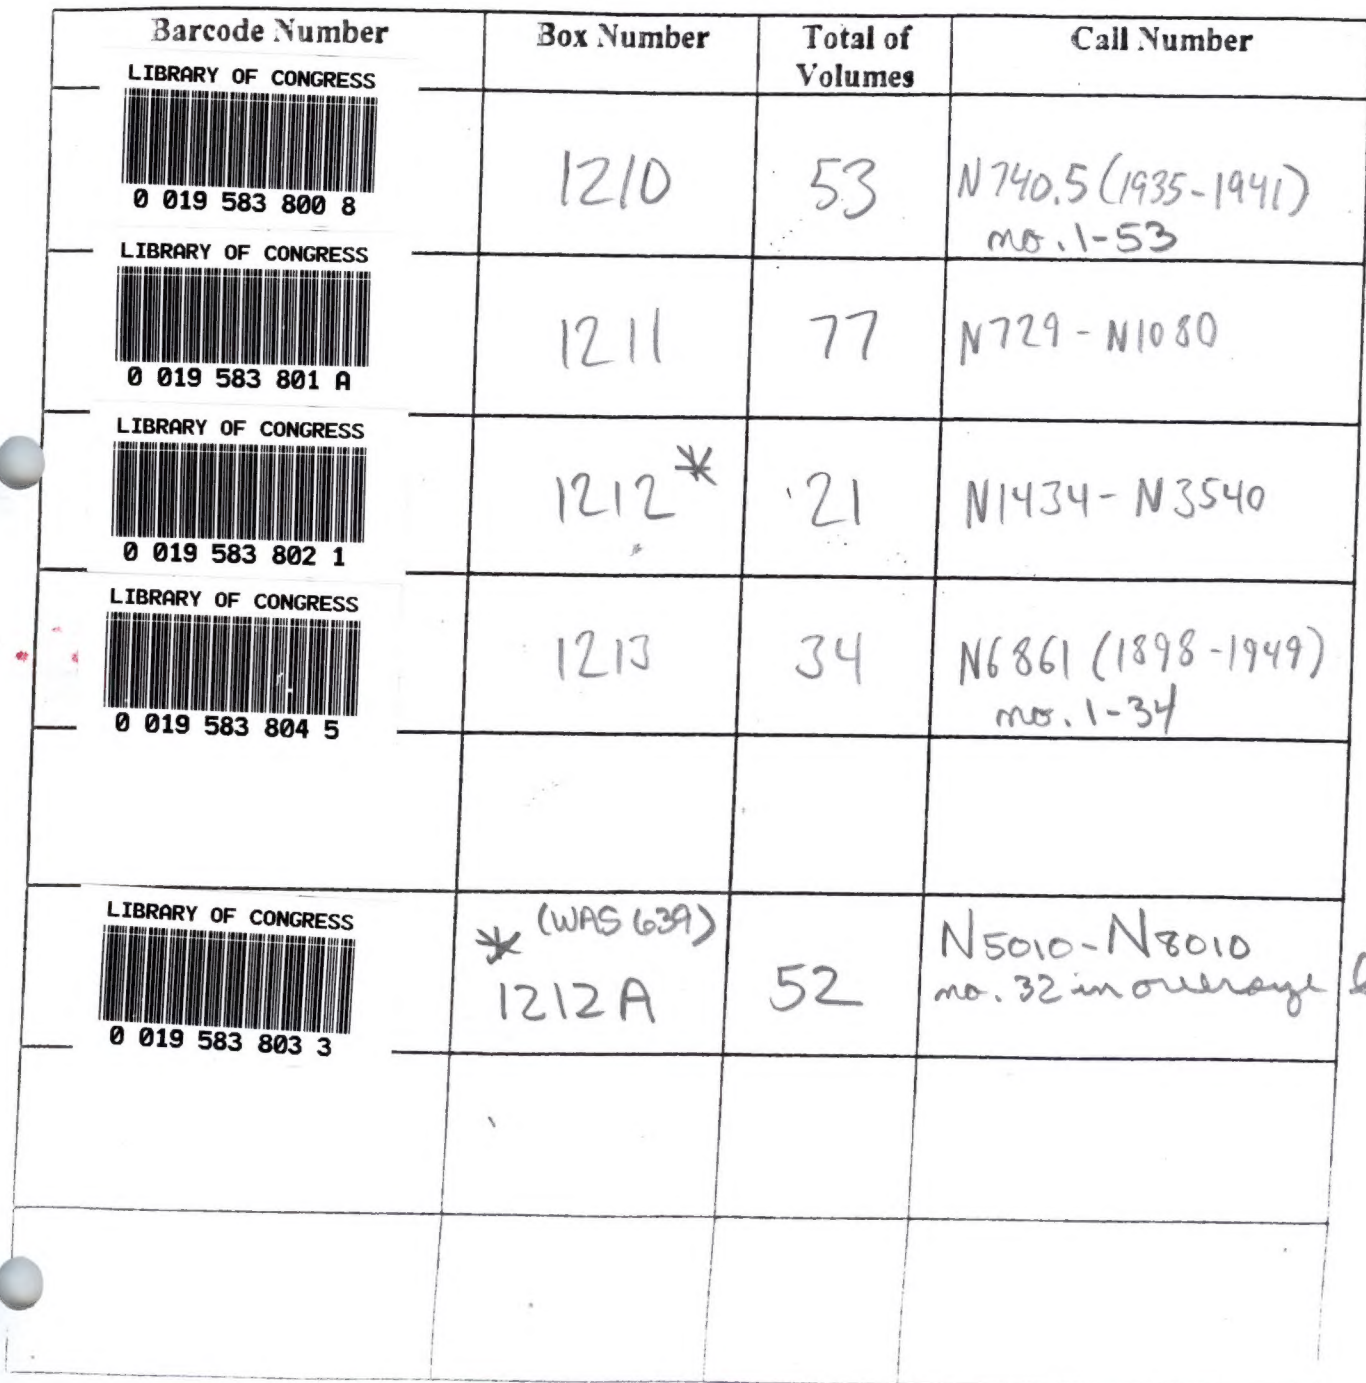 Barcode Number Box Number Total of Volumes Call Number
LIBRARY OF CONGRESS
0 019 583 800 8
1210 53 N740.5 (1935-1941)
no. 1-53
LIBRARY OF CONGRESS
0 019 583 801 A
1211 77 N729 - N1080
LIBRARY OF CONGRESS
0 019 583 802 1
1212 * 21 N1434 - N3540
LIBRARY OF CONGRESS
0 019 583 804 5
1213 34 N6861 (1898-1949)
no. 1-34
LIBRARY OF CONGRESS
0 019 583 803 3
* (WAS 639)
1212A 52 N5010-N8010
no. 32 in oversize